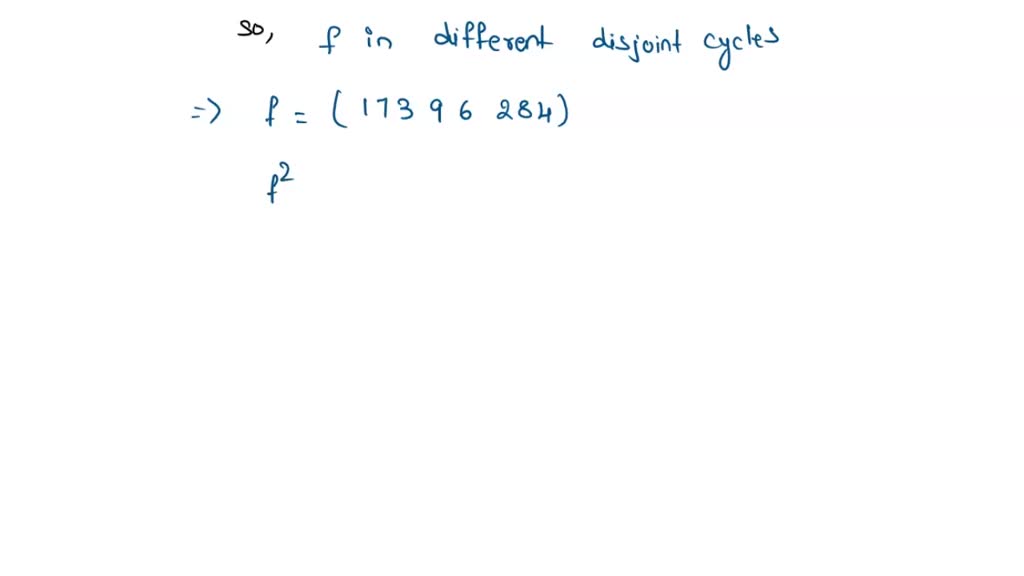 so, f in different disjoint cycles
=> f = ( 1 7 3 9 6 2 8 4 )
f²